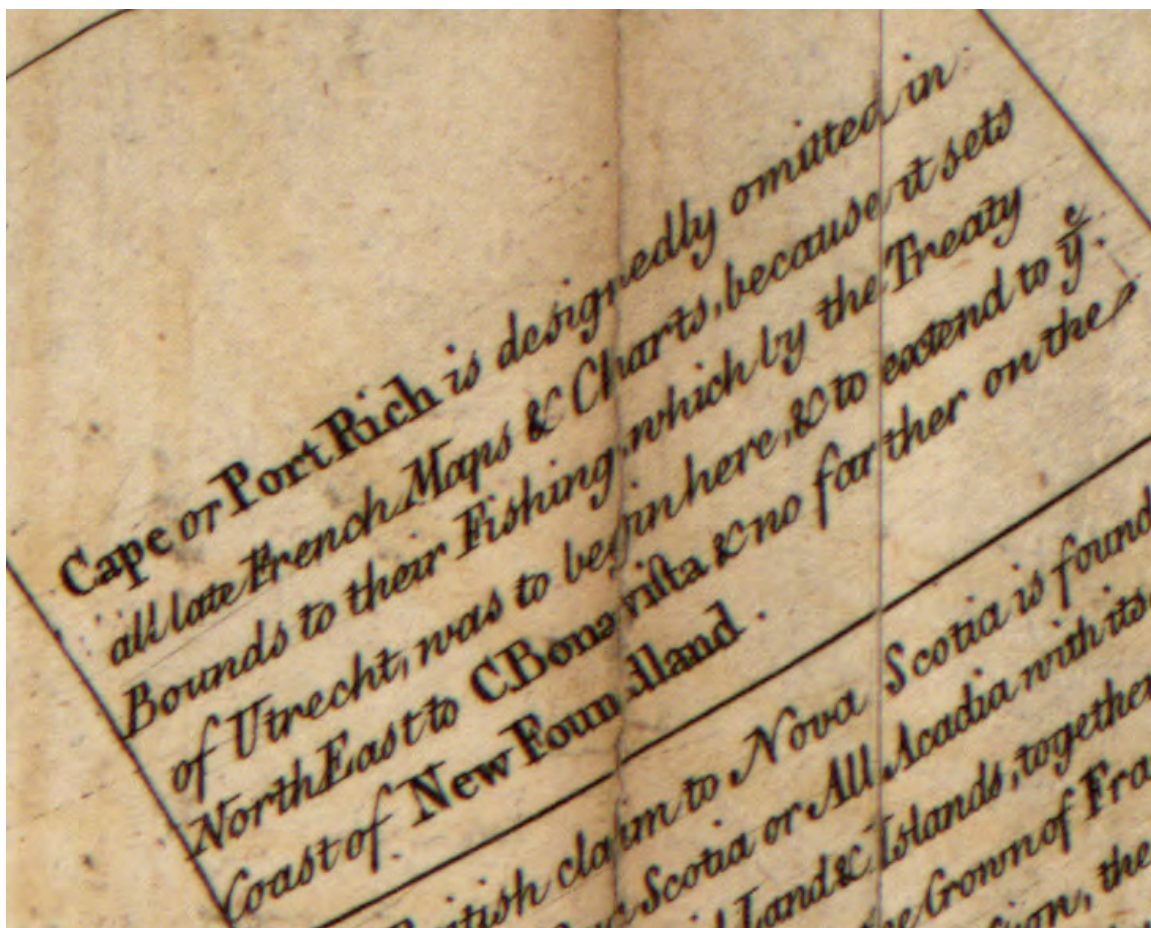 Cape or Port Rich is designedly omitted in
all late French Maps & Charts, because it sets
Bounds to their Fishing, which by the Treaty
of Utrecht, was to begin here, & to extend to yͤ.
North East to C. Bonavista & no farther on the
Coast of New Foundland.
British claim to Nova Scotia is found
Scotia or All Acadia with its
Land & Islands, together
the Crown of Fra
the